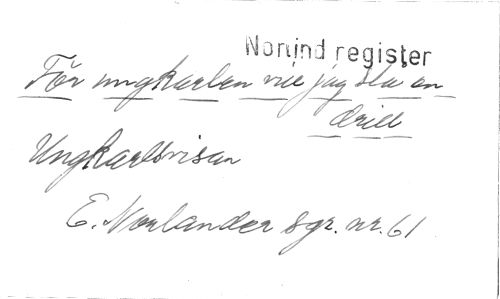 Norlind register
För ungkarlen vill jag slå en
drill
Ungkarlsvisan
E. Norlander sgr. nr. 61